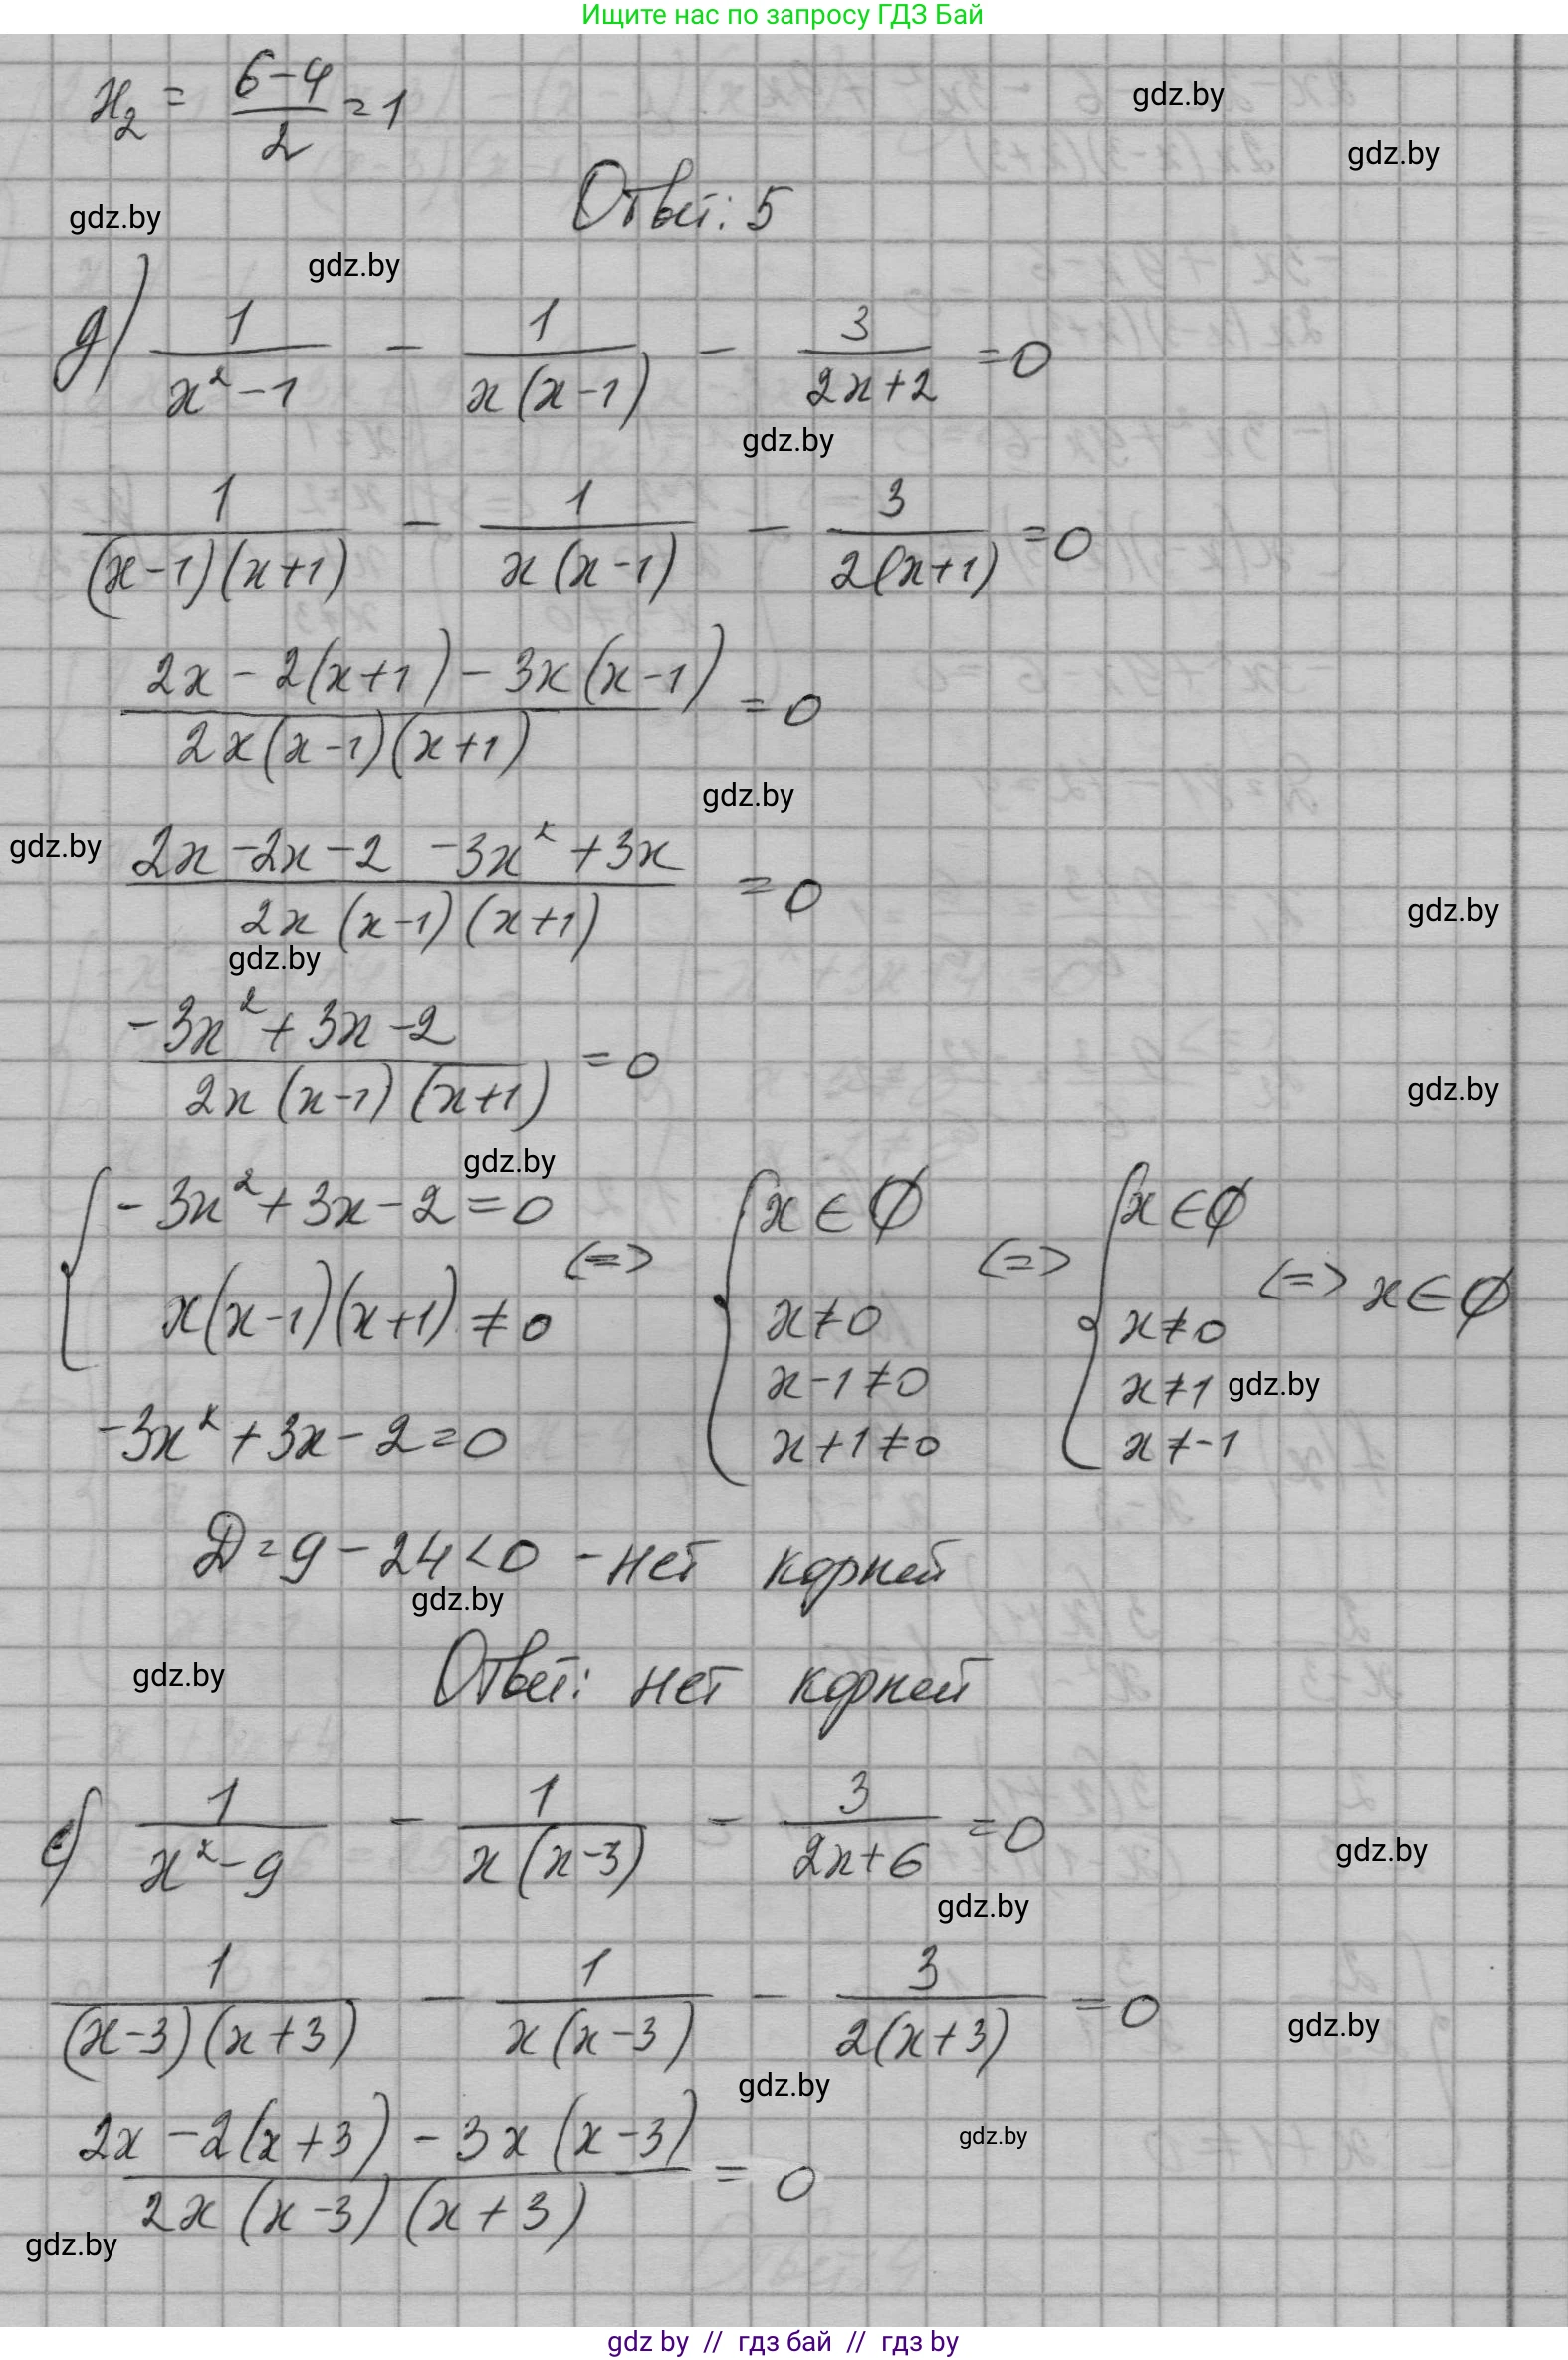 Ищите нас по запросу ГДЗ Бай
x₂ = (6-4)/2 = 1
gdz.by
gdz.by
Ответ: 5
gdz.by
gdz.by
д) 1/(x²-1) - 1/(x(x-1)) - 3/(2x+2) = 0
gdz.by
1/((x-1)(x+1)) - 1/(x(x-1)) - 3/(2(x+1)) = 0
(2x - 2(x+1) - 3x(x-1))/(2x(x-1)(x+1)) = 0
gdz.by
gdz.by
(2x-2x-2-3x²+3x)/(2x(x-1)(x+1)) = 0
gdz.by
gdz.by
(-3x²+3x-2)/(2x(x-1)(x+1)) = 0
gdz.by
gdz.by
{ -3x²+3x-2=0 <=> { x∈∅ <=> { x∈∅ <=> x∈∅
x(x-1)(x+1)≠0 x≠0 x≠0
x-1≠0 x≠1 gdz.by
-3x²+3x-2=0 x+1≠0 x≠-1
D=9-24<0 - нет корней
gdz.by
gdz.by
Ответ: нет корней
е) 1/(x²-9) - 1/(x(x-3)) - 3/(2x+6) = 0
gdz.by
gdz.by
1/((x-3)(x+3)) - 1/(x(x-3)) - 3/(2(x+3)) = 0
gdz.by
gdz.by
gdz.by
(2x-2(x+3)-3x(x-3))/(2x(x-3)(x+3)) = 0
gdz.by
gdz by // гдз бай // гдз by